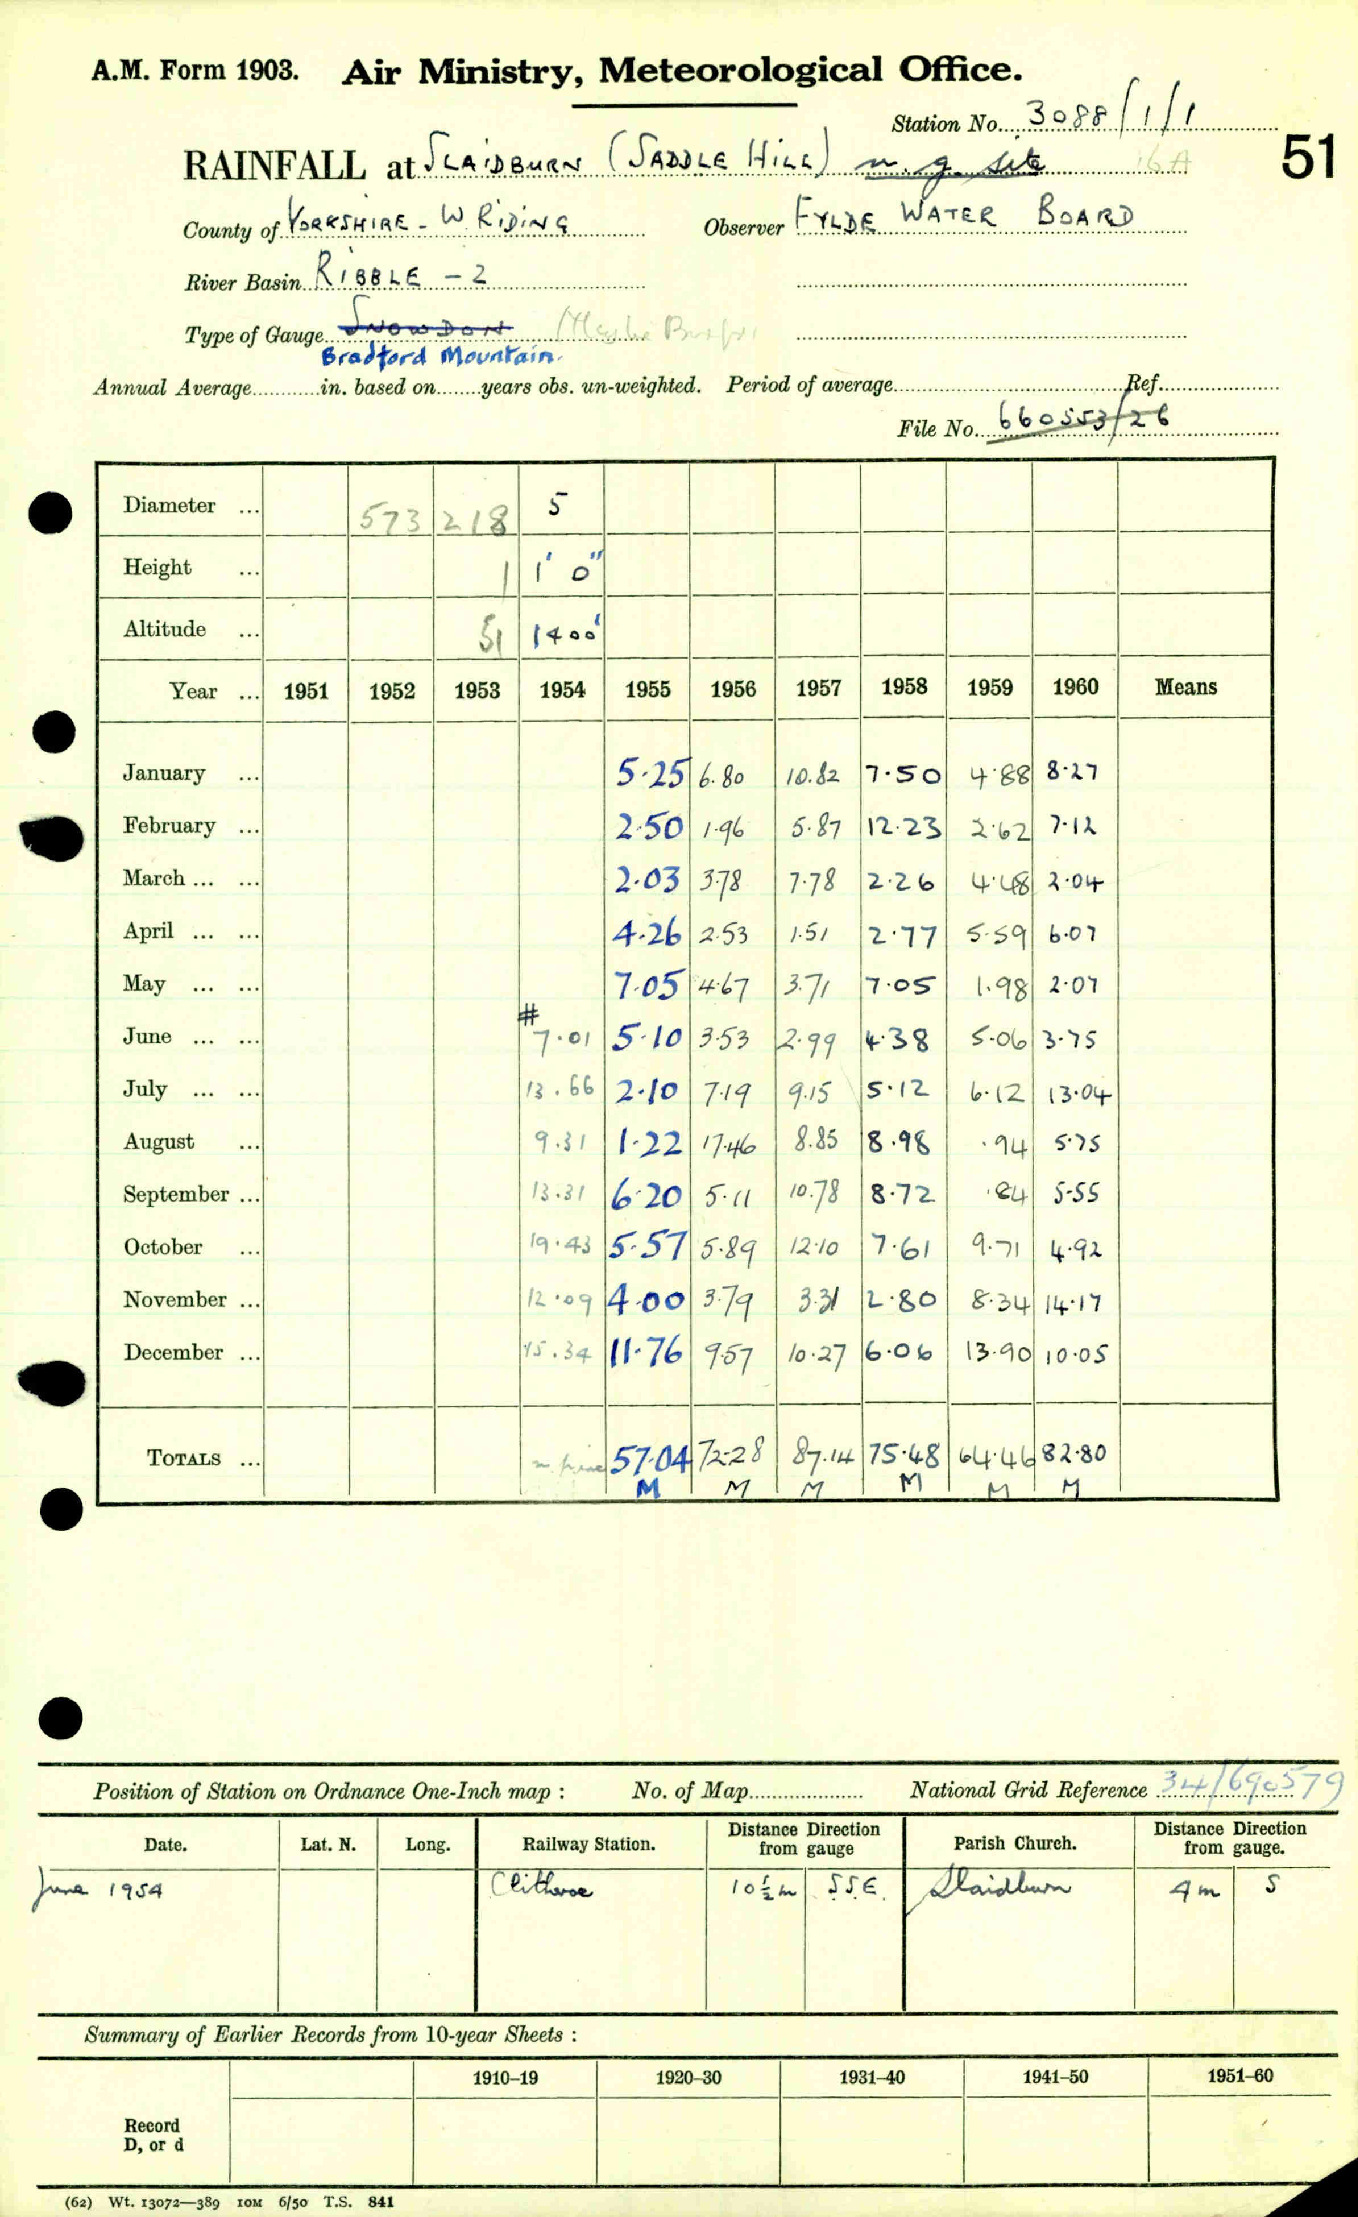 A.M. Form 1903. Air Ministry, Meteorological Office.
Station No. 3088/1/1
RAINFALL at SLAIDBURN (SADDLE HILL) m. g. site 16A 51
County of YORKSHIRE - W. RIDING Observer FYLDE WATER BOARD
River Basin RIBBLE - 2
Type of Gauge SNOWDON
Bradford Mountain.
Annual Average............in. based on........years obs. un-weighted. Period of average.................Ref.................
File No. 660553/26
Diameter ... 573 218 5
Height ... 1 1' 0"
Altitude ... 51 1400'
Year ... 1951 1952 1953 1954 1955 1956 1957 1958 1959 1960 Means
January ... 5.25 6.80 10.82 7.50 4.88 8.27
February ... 2.50 1.96 5.87 12.23 2.62 7.12
March ... ... 2.03 3.78 7.78 2.26 4.48 2.04
April ... ... 4.26 2.53 1.51 2.77 5.59 6.07
May ... ... 7.05 4.67 3.71 7.05 1.98 2.07
June ... ... # 7.01 5.10 3.53 2.99 4.38 5.06 3.75
July ... ... 13.66 2.10 7.19 9.15 5.12 6.12 13.04
August ... 9.31 1.22 17.46 8.85 8.98 .94 5.75
September ... 13.31 6.20 5.11 10.78 8.72 .84 5.55
October ... 19.43 5.57 5.89 12.10 7.61 9.71 4.92
November ... 12.09 4.00 3.79 3.31 2.80 8.34 14.17
December ... 15.34 11.76 9.57 10.27 6.06 13.90 10.05
TOTALS ... 57.04 72.28 87.14 75.48 64.46 82.80
M M M M M M
Position of Station on Ordnance One-Inch map : No. of Map.................... National Grid Reference 34/690579
Date. Lat. N. Long. Railway Station. Distance from Direction gauge Parish Church. Distance from Direction gauge.
June 1954 Clitheroe 10½ m S.S.E. Slaidburn 4 m S
Summary of Earlier Records from 10-year Sheets :
1910–19 1920–30 1931–40 1941–50 1951–60
Record
D, or d
(62) Wt. 13072—389 10M 6/50 T.S. 841